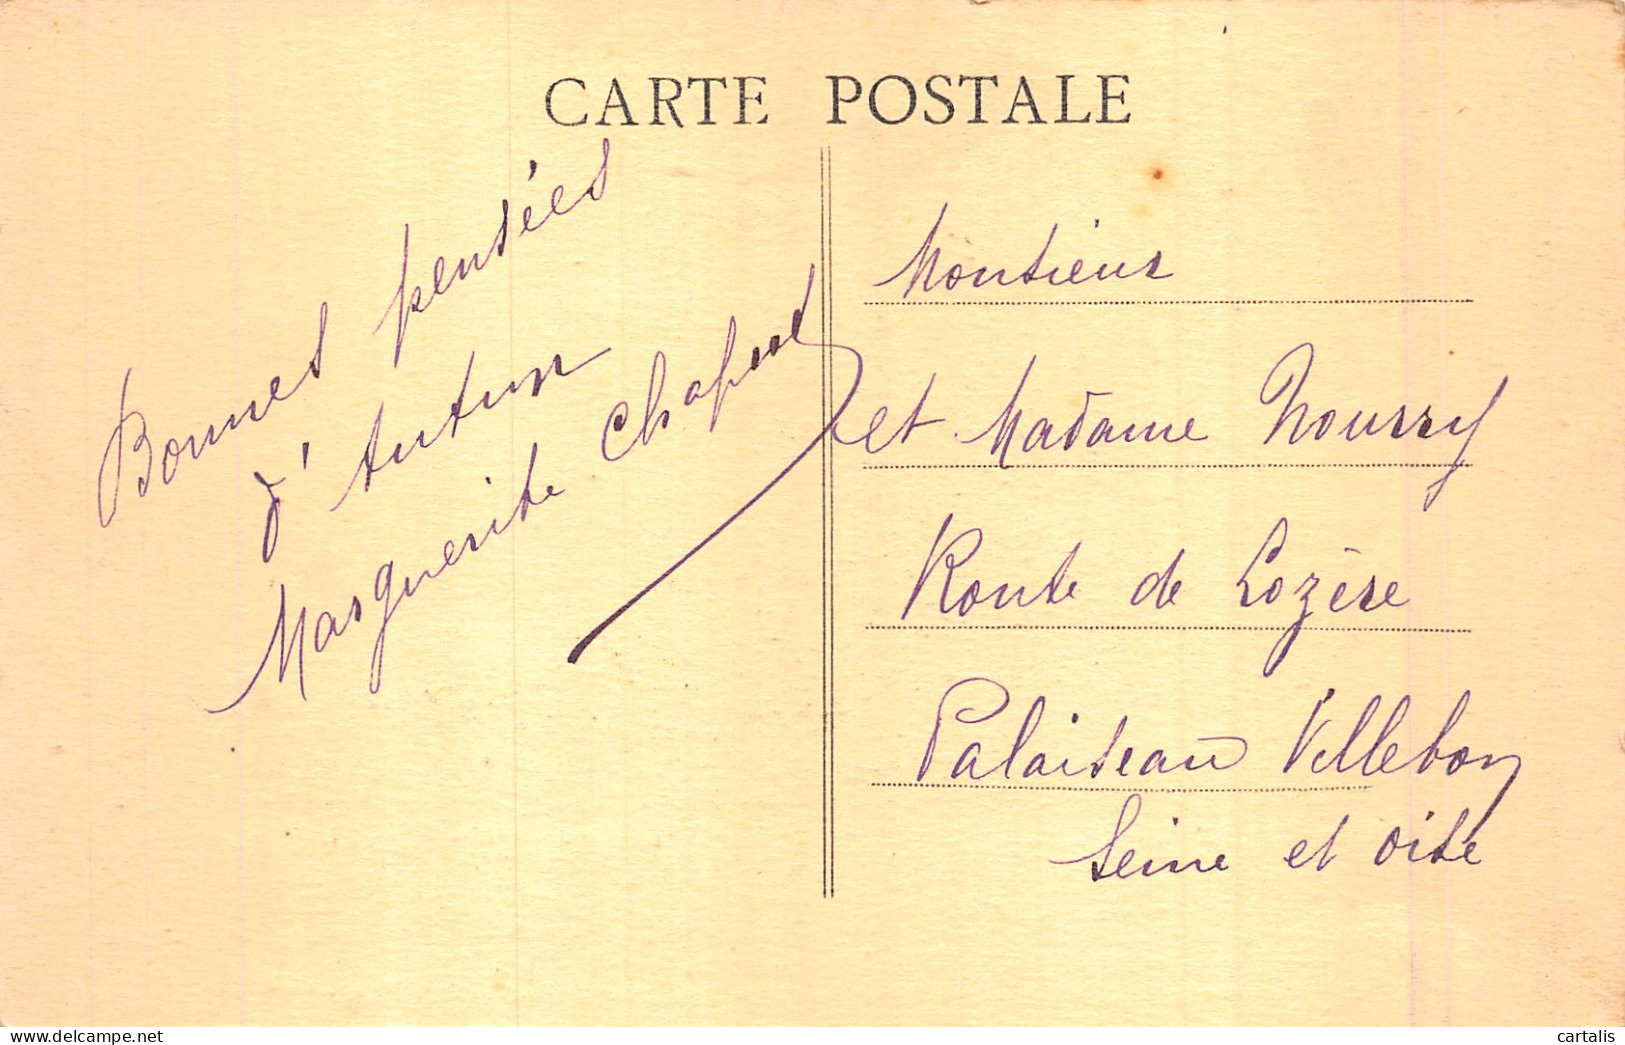 CARTE POSTALE
Bonnes pensées
d'Autun
Marguerite
Monsieur
et Madame Nourry
Route de Lozère
Palaiseau Villebon
Seine et Oise
cartalis